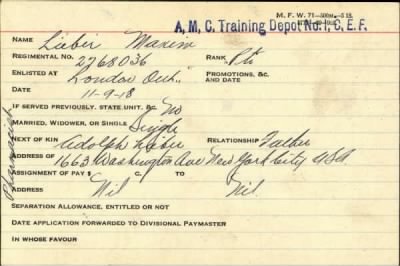 M. F. W. 71
A. M. C. Training Depot No. 1, C. E. F.
NAME Lieber Maxim
REGIMENTAL NO. 2768036 RANK Pte
ENLISTED AT London Ont. PROMOTIONS, &C. AND DATE
DATE 11-9-18
IF SERVED PREVIOUSLY, STATE UNIT, &C No
MARRIED, WIDOWER, OR SINGLE Single
NEXT OF KIN Adolph Lieber RELATIONSHIP Father
ADDRESS OF 1663 Washington Ave New York City USA
ASSIGNMENT OF PAY $ C. TO
ADDRESS Nil Nil.
SEPARATION ALLOWANCE, ENTITLED OR NOT
DATE APPLICATION FORWARDED TO DIVISIONAL PAYMASTER
IN WHOSE FAVOUR